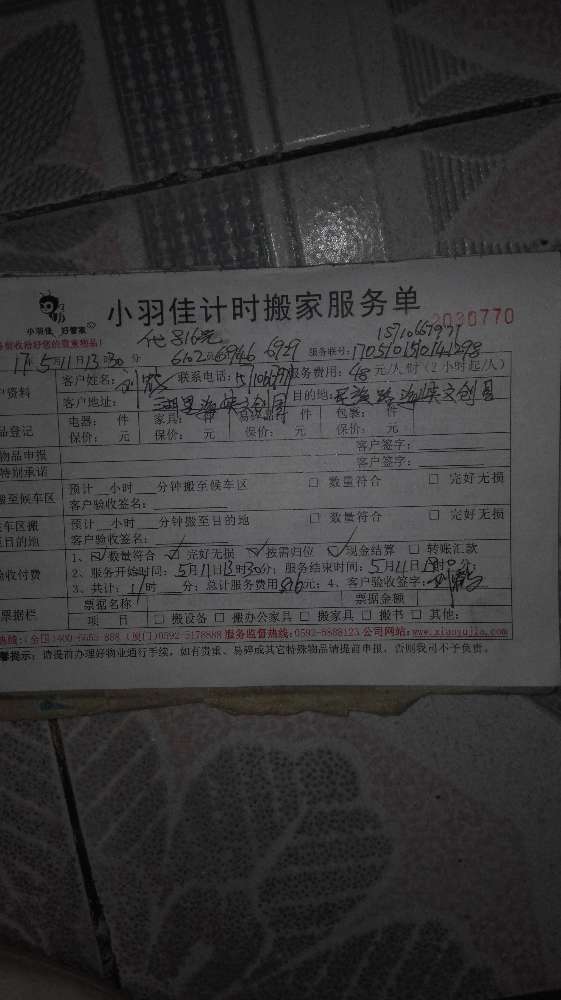 小羽佳 好管家
小羽佳计时搬家服务单
2030770
代816元
15710667971
17年5月11日13时30分
服务联号:
客户姓名: 联系电话: 服务费用: 48元/人/时(2小时起/人)
客户地址: 湖里海峡文创园 目的地: 海峡文创园
电器: 件 家具: 件 件 包裹: 件
保价: 元 保价: 元 保价: 元 保价: 元
物品申报 客户签字:
特别承诺 客户签字:
搬至候车区 预计 小时 分钟搬至候车区 □ 数量符合 □ 完好无损
客户验收签名:
预计 小时 分钟搬至目的地 □ 数量符合 □ 完好无损
客户验收签名:
验收付费 1、☑数量符合 ☑完好无损 ☑按需归位 ☑现金结算 □ 转账汇款
2、服务开始时间: 5月11日13时30分; 服务结束时间: 5月11日
3、共计: 时 分; 总计服务费用816元; 4、客户验收签字:
票据栏 票据名称 票据金额
项 目 □ 搬设备 □ 搬办公家具 □ 搬家具 □ 搬书 □ 其他:
热线:(全国)400-6655-888 (厦门)0592-5178888 服务监督热线:0592-5888123 公司网站:www.xiaoyujia.com
温馨提示: 请提前办理好物业通行手续, 如有贵重、易碎或其它特殊物品请提前申报, 否则我司不予负责。